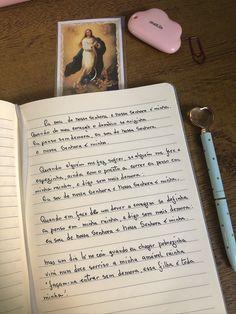 Eu sou de Nossa Senhora, e Nossa Senhora é minha.
Quando do meu coração o demônio se avizinha
Eu penso sem demora, eu sou de Nossa Senhora
e Nossa Senhora é minha.
Quando alguém me faz sofrer, se alguém me fere e
espezinha, ainda com o perdão a correr eu penso em
minha rainha, e digo sem mais demora.
Eu sou de Nossa Senhora e Nossa Senhora é minha.
Quando em face de um dever a coragem se definha
eu penso em minha rainha, e digo sem mais demora
eu sou de Nossa Senhora e Nossa Senhora é minha.
Mas um dia lá no céu quando eu chegar pobrezinha
virá num doce sorriso a minha amável rainha
"façam-na entrar sem demora, essa filha é toda
minha".